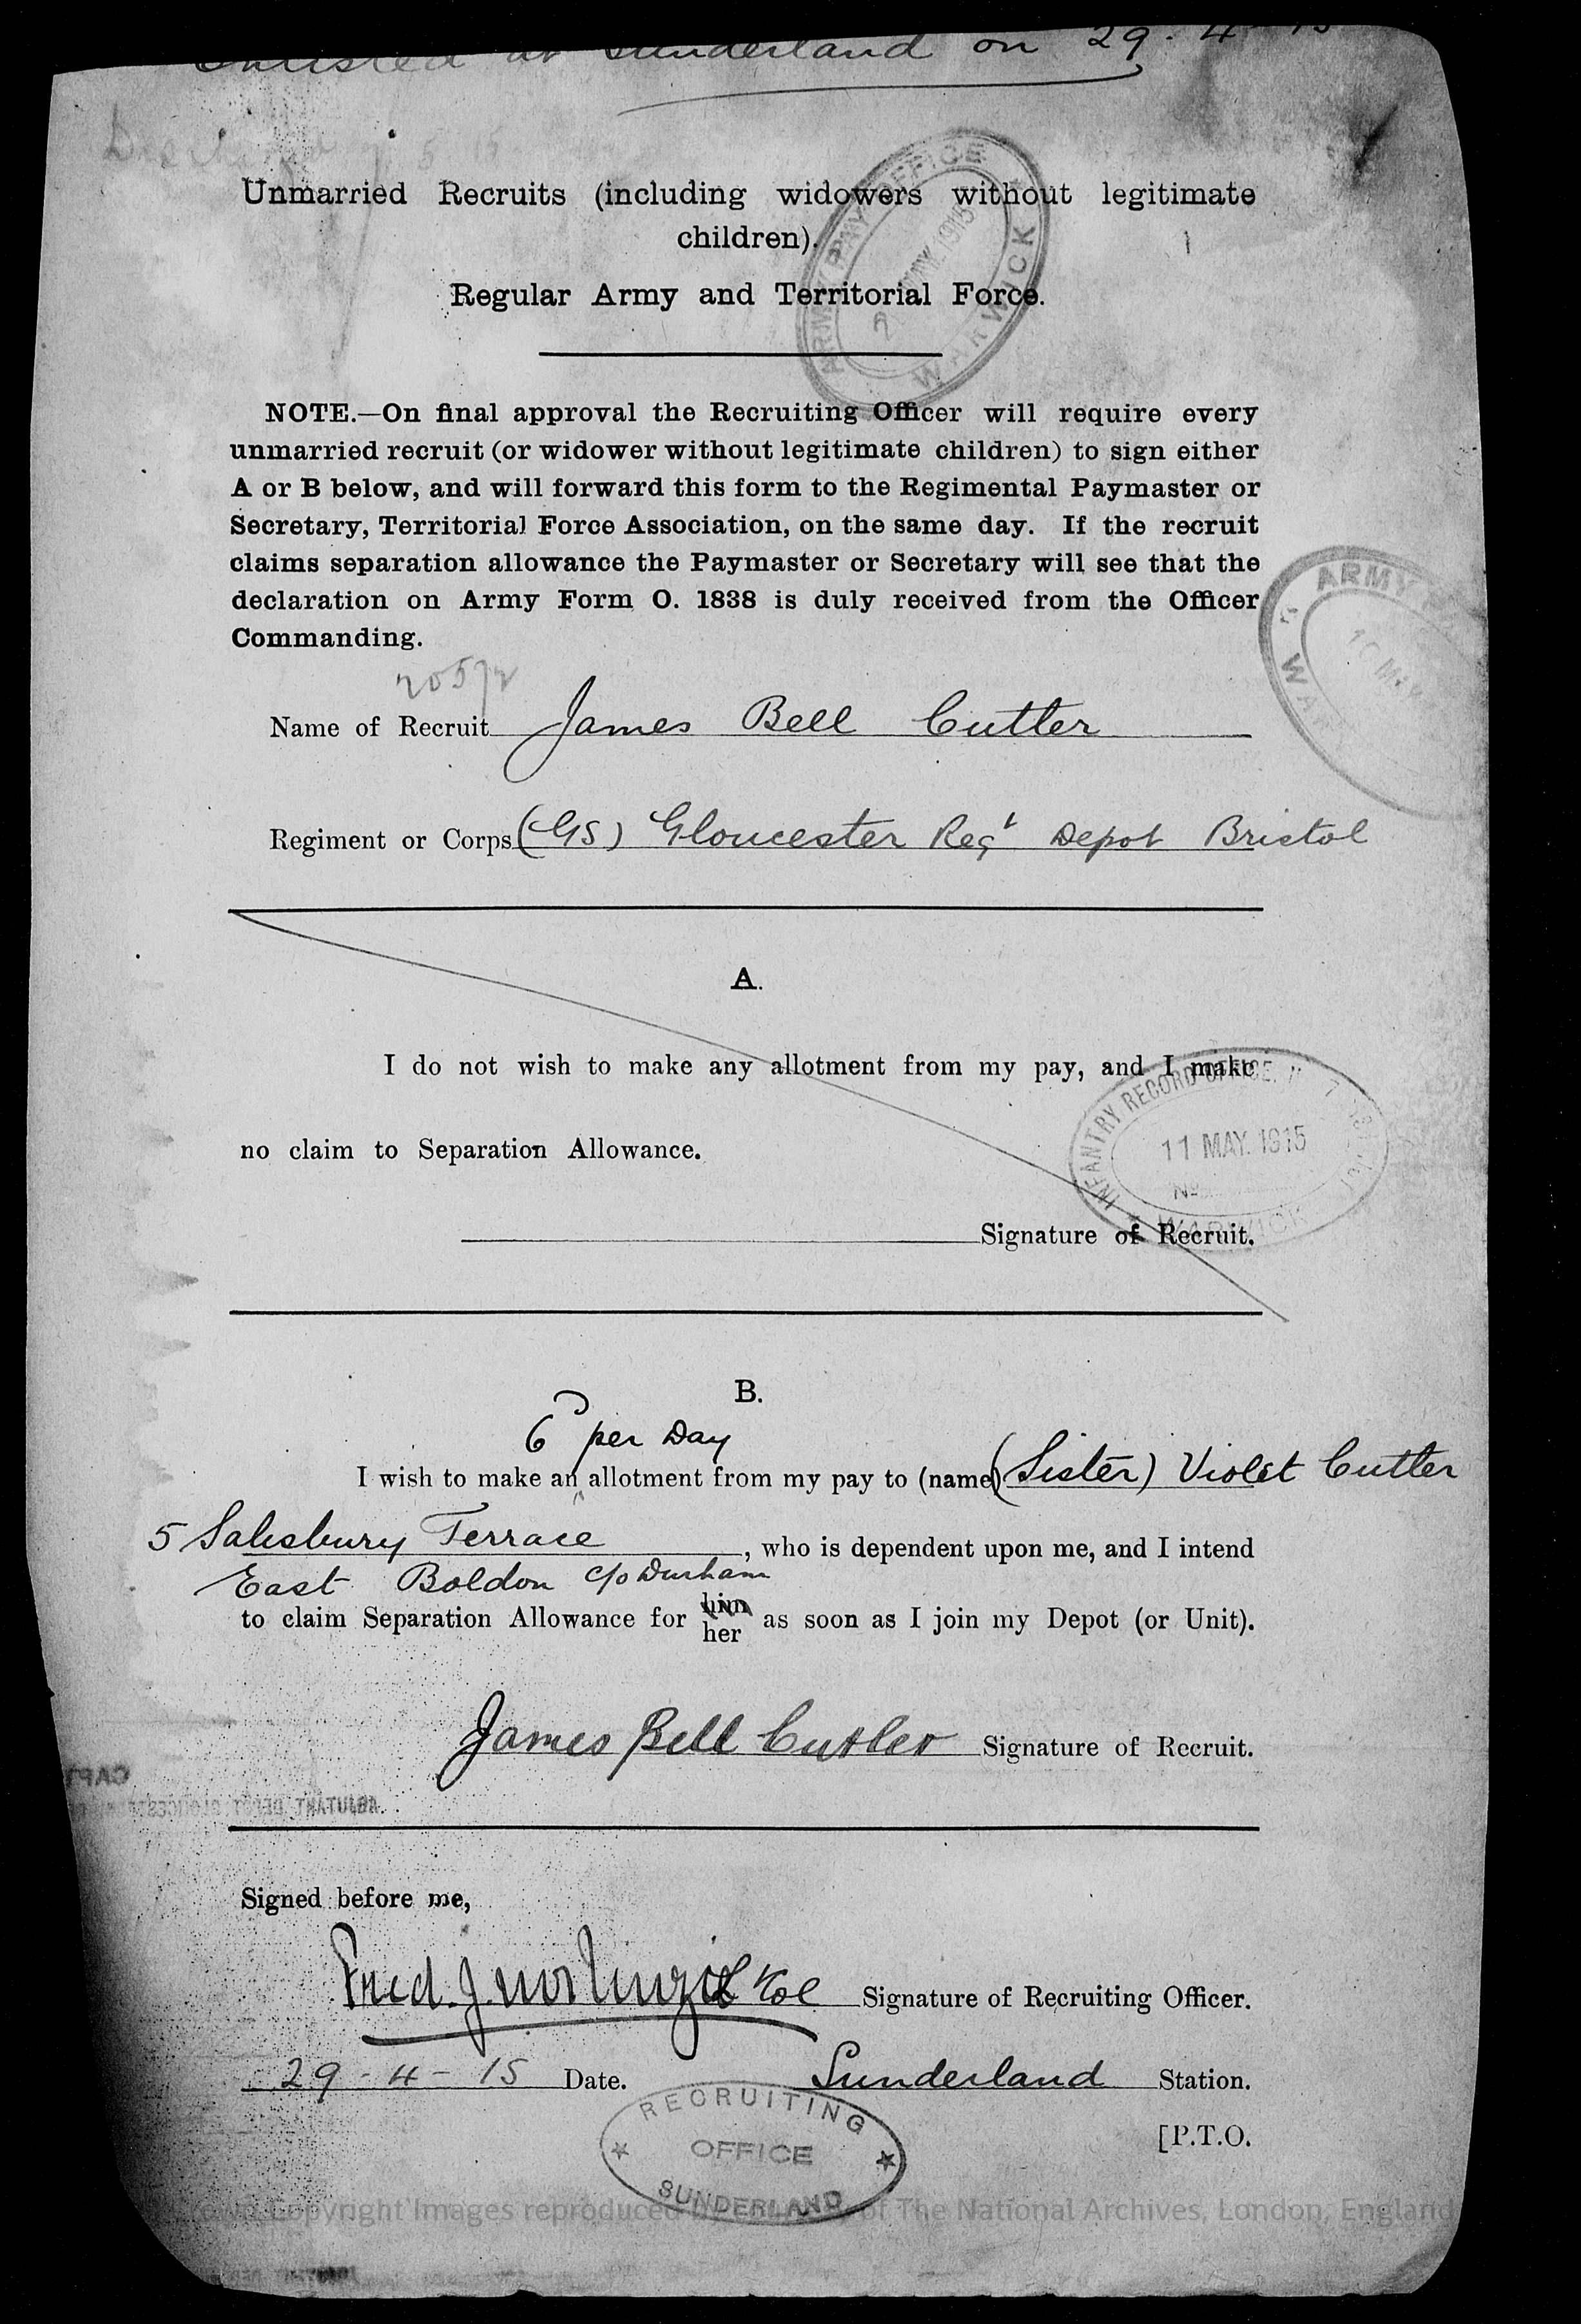 Enlisted at Sunderland on 29. 4 15
Unmarried Recruits (including widowers without legitimate
children).
Regular Army and Territorial Force.
ARMY PAY OFFICE
MAY. 1915
WARWICK
NOTE.—On final approval the Recruiting Officer will require every
unmarried recruit (or widower without legitimate children) to sign either
A or B below, and will forward this form to the Regimental Paymaster or
Secretary, Territorial Force Association, on the same day. If the recruit
claims separation allowance the Paymaster or Secretary will see that the
declaration on Army Form O. 1838 is duly received from the Officer
Commanding.
ARMY
Name of Recruit James Bell Cutler
Regiment or Corps (GS) Gloucester Regt Depot Bristol
A.
I do not wish to make any allotment from my pay, and I make
no claim to Separation Allowance.
INFANTRY RECORD OFFICE
11 MAY. 1915
No
WARWICK
Signature of Recruit.
B.
6 per Day
I wish to make an allotment from my pay to (name) (Sister) Violet Cutler
5 Salisbury Terrace, who is dependent upon me, and I intend
East Boldon c/o Durham
to claim Separation Allowance for him her as soon as I join my Depot (or Unit).
James Bell Cutler Signature of Recruit.
CAPT
ADJUTANT DEPOT
Signed before me,
Signature of Recruiting Officer.
29 - 4 - 15 Date. Sunderland Station.
RECRUITING
OFFICE
SUNDERLAND
[P.T.O.
Copyright Images reproduced by of The National Archives, London, England